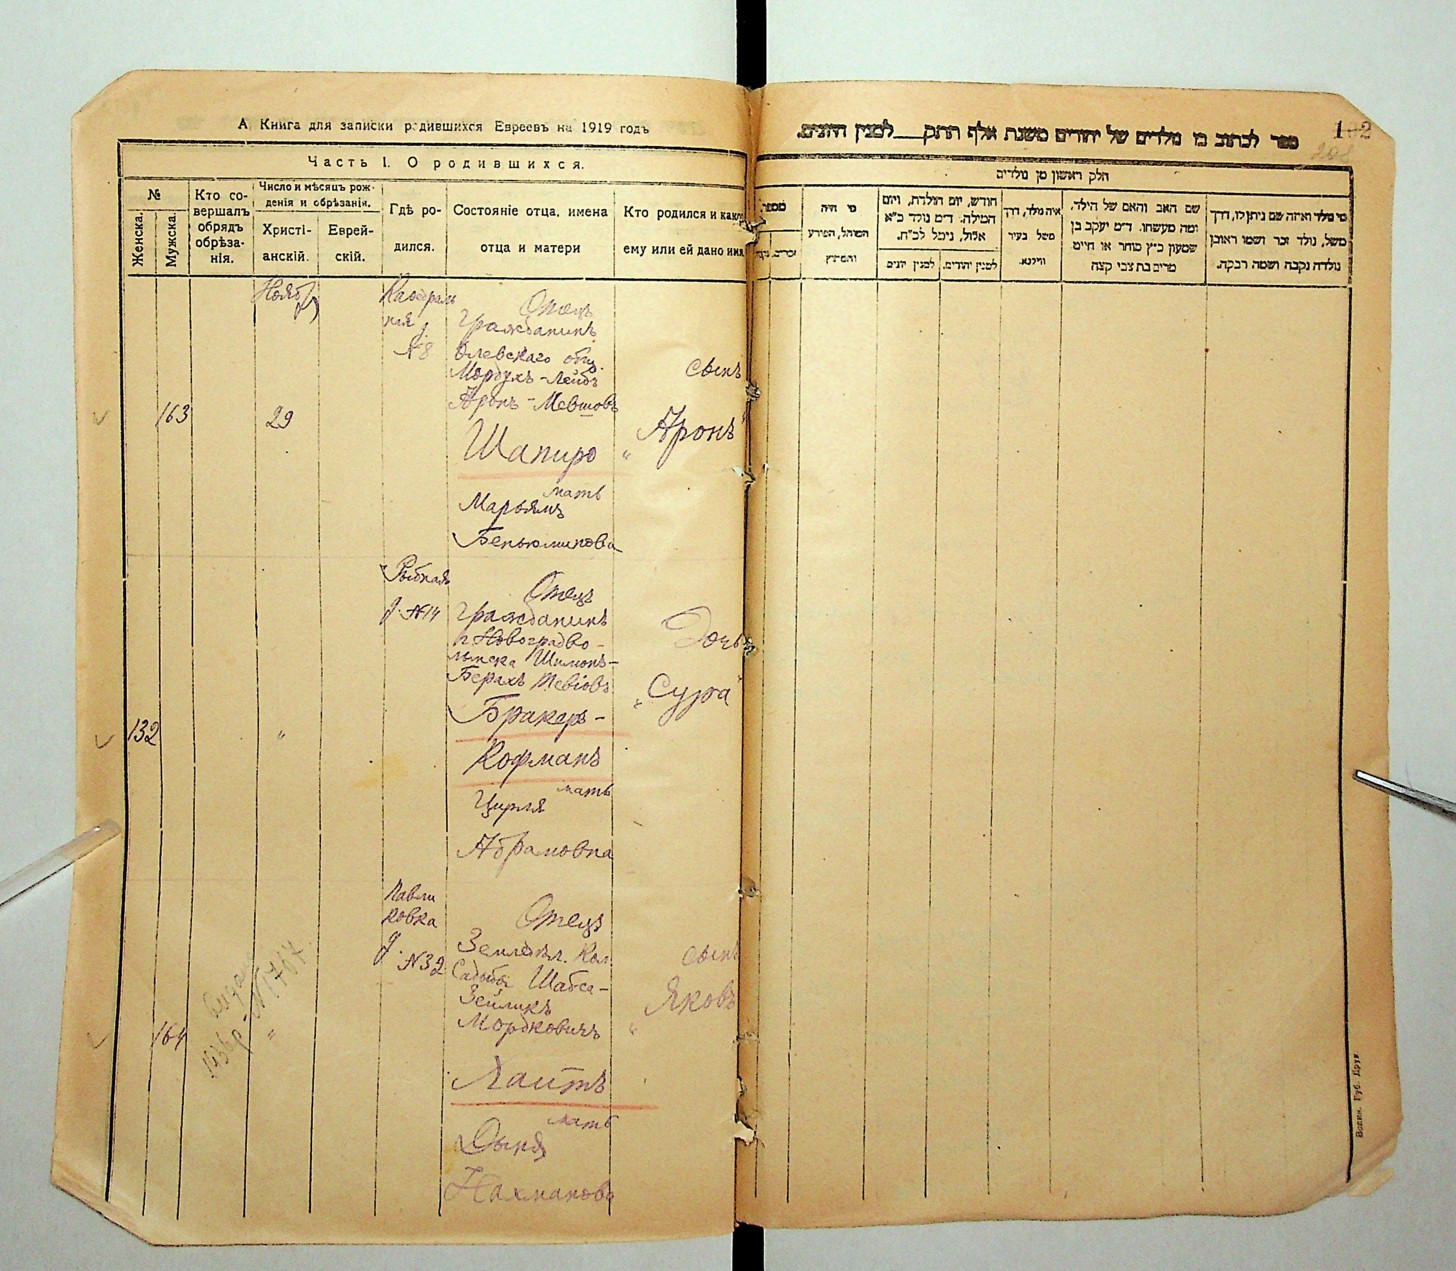 А. Книга для записки родившихся Евреевъ на 1919 годъ
Часть I. О родившихся.
№
Женска.
Мужска.
Кто со-
вершалъ
обрядъ
обрѣза-
нія.
Число и мѣсяцъ рож-
денія и обрѣзанія.
Христі-
анскій.
Еврей-
скій.
Гдѣ ро-
дился.
Состояніе отца, имена
отца и матери
Кто родился и какое
ему или ей дано имя
163
Ноябрь
29
№ 8
Отецъ
Гражданинъ
Олевскаго общ.
Мордухъ-Лейбъ
Аронъ-
Шапиро
мать
Марьямъ
Беньюминовна
сынъ
„Аронъ"
132
"
Рыбная
д. №14
Отецъ
Гражданинъ
г. Новоградво-
лынска Шимонъ-
Бракеръ-
Кофманъ
мать
Абрамовна
Дочь
„Сура"
164
1936 р. №1767
"
Павли
ковка
д. №32
Отецъ
Земледѣл. Кол.
Шабса-
Зейликъ
Мордковичъ
мать
Нахманова
сынъ
„Яковъ
102
202
ספר לכתוב בו נולדים של יהודים משנת אלף התק___למנין היונים.
חלק ראשון מן נולדים
מספר
זכרים.
מי היה
המוהל, הפורע
והמוצץ
חודש, יום הולדת, ויום
המילה. ד״מ נולד כ״א
אלול, נימל לכ״ח.
למנין יהודים.
למנין יונים
איה נולד, דרך
משל בעיר
ווילנא.
שם האב והאם של הילד.
ומה מעשהו. ד״מ יעקב בן
שמעון כ״ץ סוחר או חייט
מרים בת צבי קצה
מי נולד ואיזה שם ניתן לו, דרך
משל, נולד זכר ושמו ראובן
נולדה נקבה ושמה רבקה.
Волин. Губ. Друк